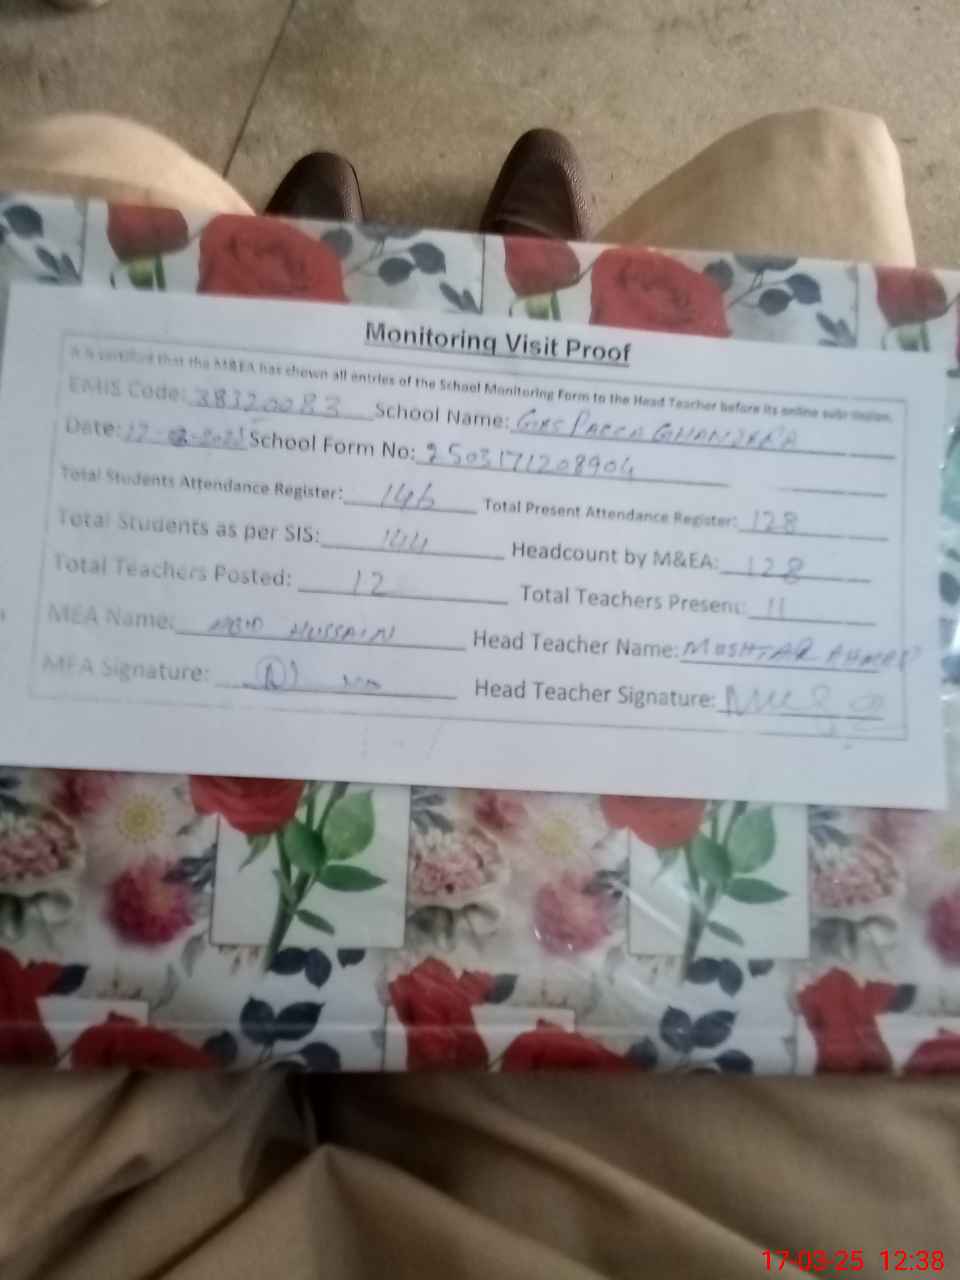 Monitoring Visit Proof
It is certified that the M&EA has shown all entries of the School Monitoring Form to the Head Teacher before its online submission.
EMIS Code: 38320083 School Name: GHS PACCA GHANJERA
Date: 17-03-2025 School Form No: 2503171208904
Total Students Attendance Register: 146 Total Present Attendance Register: 128
Total Students as per SIS: 144 Headcount by M&EA: 128
Total Teachers Posted: 12 Total Teachers Present: 11
MEA Name: HUSSAIN Head Teacher Name: MUSHTAR AHMED
MEA Signature: Head Teacher Signature:
17-03-25 12:38